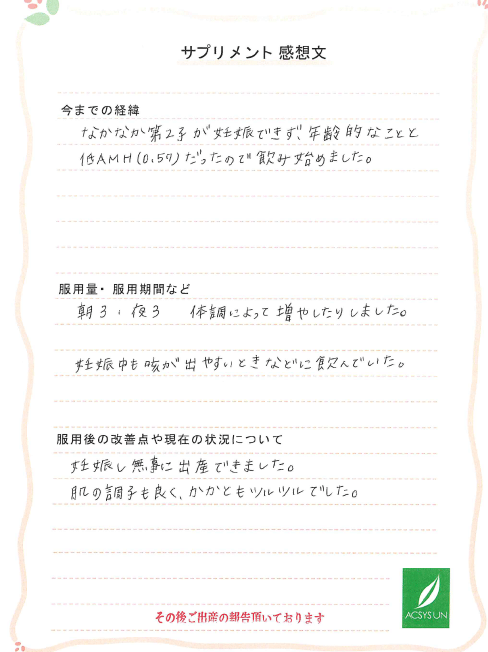 サプリメント 感想文
今までの経緯
なかなか第2子が妊娠できず、年齢的なことと
低AMH(0.57)だったので飲み始めました。
服用量・服用期間など
朝3:夜3 体調によって増やしたりしました。
妊娠中も咳が出やすいときなどに飲んでいた。
服用後の改善点や現在の状況について
妊娠し無事に出産できました。
肌の調子も良く、かかともツルツルでした。
ACSYSUN
その後ご出産の報告頂いております